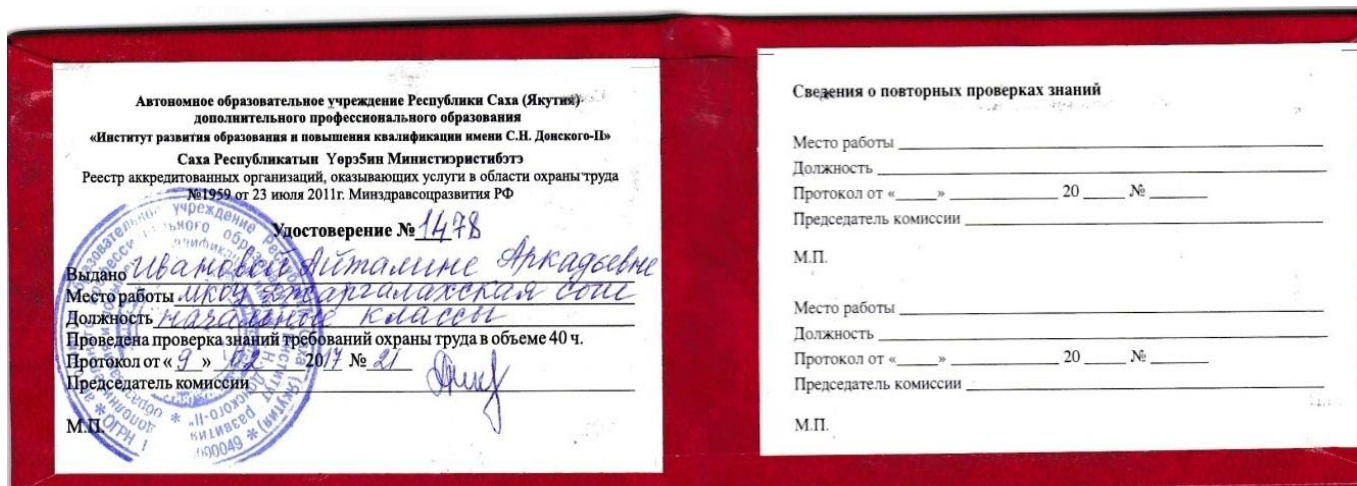 Автономное образовательное учреждение Республики Саха (Якутия)
дополнительного профессионального образования
«Институт развития образования и повышения квалификации имени С.Н. Донского-II»
Саха Республикатын Үөрэ5ин Министиэристибэтэ
Реестр аккредитованных организаций, оказывающих услуги в области охраны труда
№1959 от 23 июля 2011г. Минздравсоцразвития РФ
Удостоверение № 1478
Выдано Ивановой Айталине Аркадьевне
Место работы МКОУ Джаргалахская СОШ
Должность начальные классы
Проведена проверка знаний требований охраны труда в объеме 40 ч.
Протокол от « 9 » 02 2017 № 21
Председатель комиссии
М.П.
Сведения о повторных проверках знаний
Место работы
Должность
Протокол от « » 20 №
Председатель комиссии
М.П.
Место работы
Должность
Протокол от « » 20 №
Председатель комиссии
М.П.